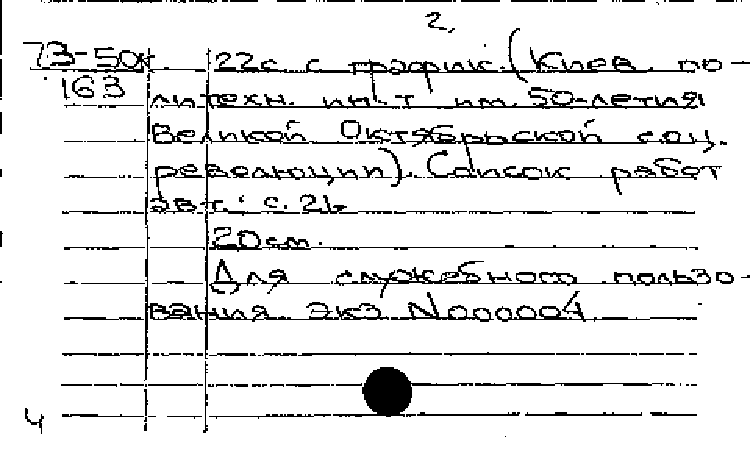 2.
73-50к. 22с. с график. (Киев. по-
163
литехн. ин-т им. 50-летия
Великой Октябрьской соц.
революции). Список работ
авт.: с. 21.
20см.
Для служебного пользо-
вания экз N000004
4